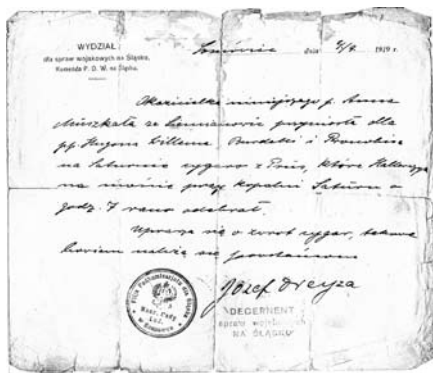 WYDZIAŁ
dla spraw wojskowych na Śląsku,
Komenda P. O. W. na Śląsku.
Sosnowice dnia 1919 r.
Okazicielka niniejszego p. Anna
ze Siemianowic przyniosła dla
pp. Hugona i
na Saturnie cygara z Prus, które Hallerczyk
na moście przy kopalni Saturn o
godz. 7 rano odebrał.
Uprasza się o zwrot cygar, takowe
bowiem należą się powstańcom
Józef Dreyza
DECERNENT
spraw wojskowych
NA ŚLĄSKU